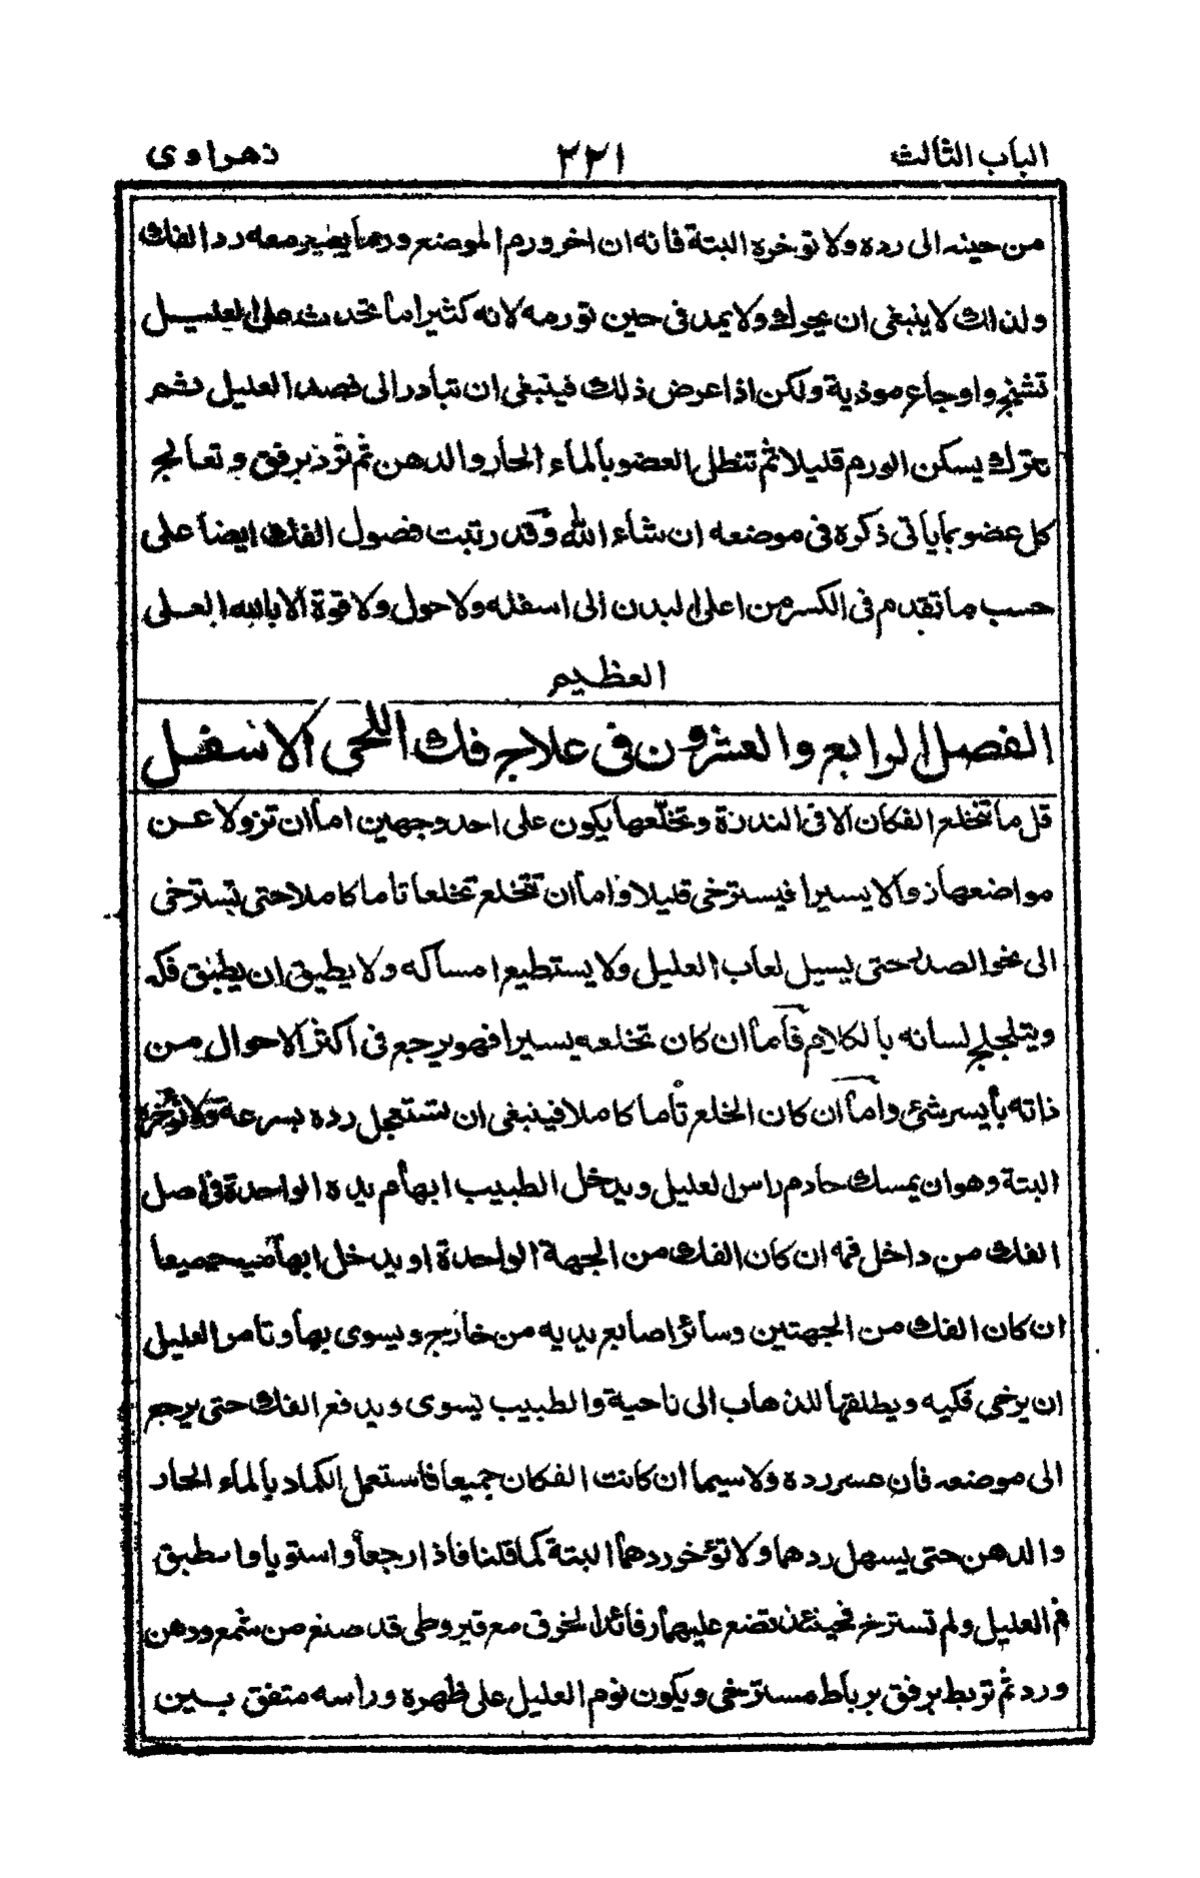 الباب الثالث ٢٢١ زهراوى
من حينه الى رده ولا توخره البتة فانه ان اخر ورم الموضع وربما يضير معه رد الفك
ولذالك لا ينبغى ان يحرك ولا يمد فى حين تورمه لانه كثيرا ما تحدث على العليل
تشنج واوجاع موذية ولكن اذا عرض ذلك فينبغى ان تبادر الى فصد العليل ثم
تترك يسكن الورم قليلا ثم تنطل العضو بالماء الحار والدهن ثم تزد برفق وتعالج
كل عضو بما ياتى ذكره فى موضعه ان شاء الله وقد رتبت فصول الفك ايضا على
حسب ما تقدم فى الكسر من اعلى البدن الى اسفله ولا حول ولا قوة الا بالله العلى
العظيم
الفصل الرابع والعشرون فى علاج فك اللحى الاسفل
قل ما تتخلع الفكان الا فى الندرة وتخلعها يكون على احد وجهين اما ان تزولا عن
مواضعها زوالا يسيرا فيسترخى قليلا واما ان تتخلع تخلعا تاما كاملا حتى تسترخى
الى نحو الصدر حتى يسيل لعاب العليل ولا يستطيع امساكه ولا يطيق ان يطبق فكه
ويتلجلج لسانه بالكلام فاما ان كان تخلعه يسيرا فهو يرجع فى اكثر الاحوال من
ذاته بايسر شئ واما ان كان الخلع تاما كاملا فينبغى ان تستعجل رده بسرعة ولا تؤخره
البتة وهو ان يمسك خادم راس العليل ويدخل الطبيب ابهام يده الواحدة فى اصل
الفك من داخل فمه ان كان الفك من الجهة الواحدة او يدخل ابهاميه جميعا
ان كان الفك من الجهتين وسائر اصابع يديه من خارج ويسوى بها وتامر العليل
ان يرخى فكيه ويطلقها للذهاب الى ناحية والطبيب يسوى ويدفع الفك حتى يرجع
الى موضعه فان عسر رده ولا سيما ان كانت الفكان جميعا فاستعمل الكماد بالماء الحار
والدهن حتى يسهل ردهما ولا تؤخر ردهما البتة كما قلنا فاذا رجعا واستويا وانطبق
فم العليل ولم تسترخ فحينئذ تضع عليهما رفائد الخرق مع قيروطى قد صنع من شمع ودهن
ورد ثم تربط برفق برباط مسترخى ويكون نوم العليل على ظهره وراسه متفق بين